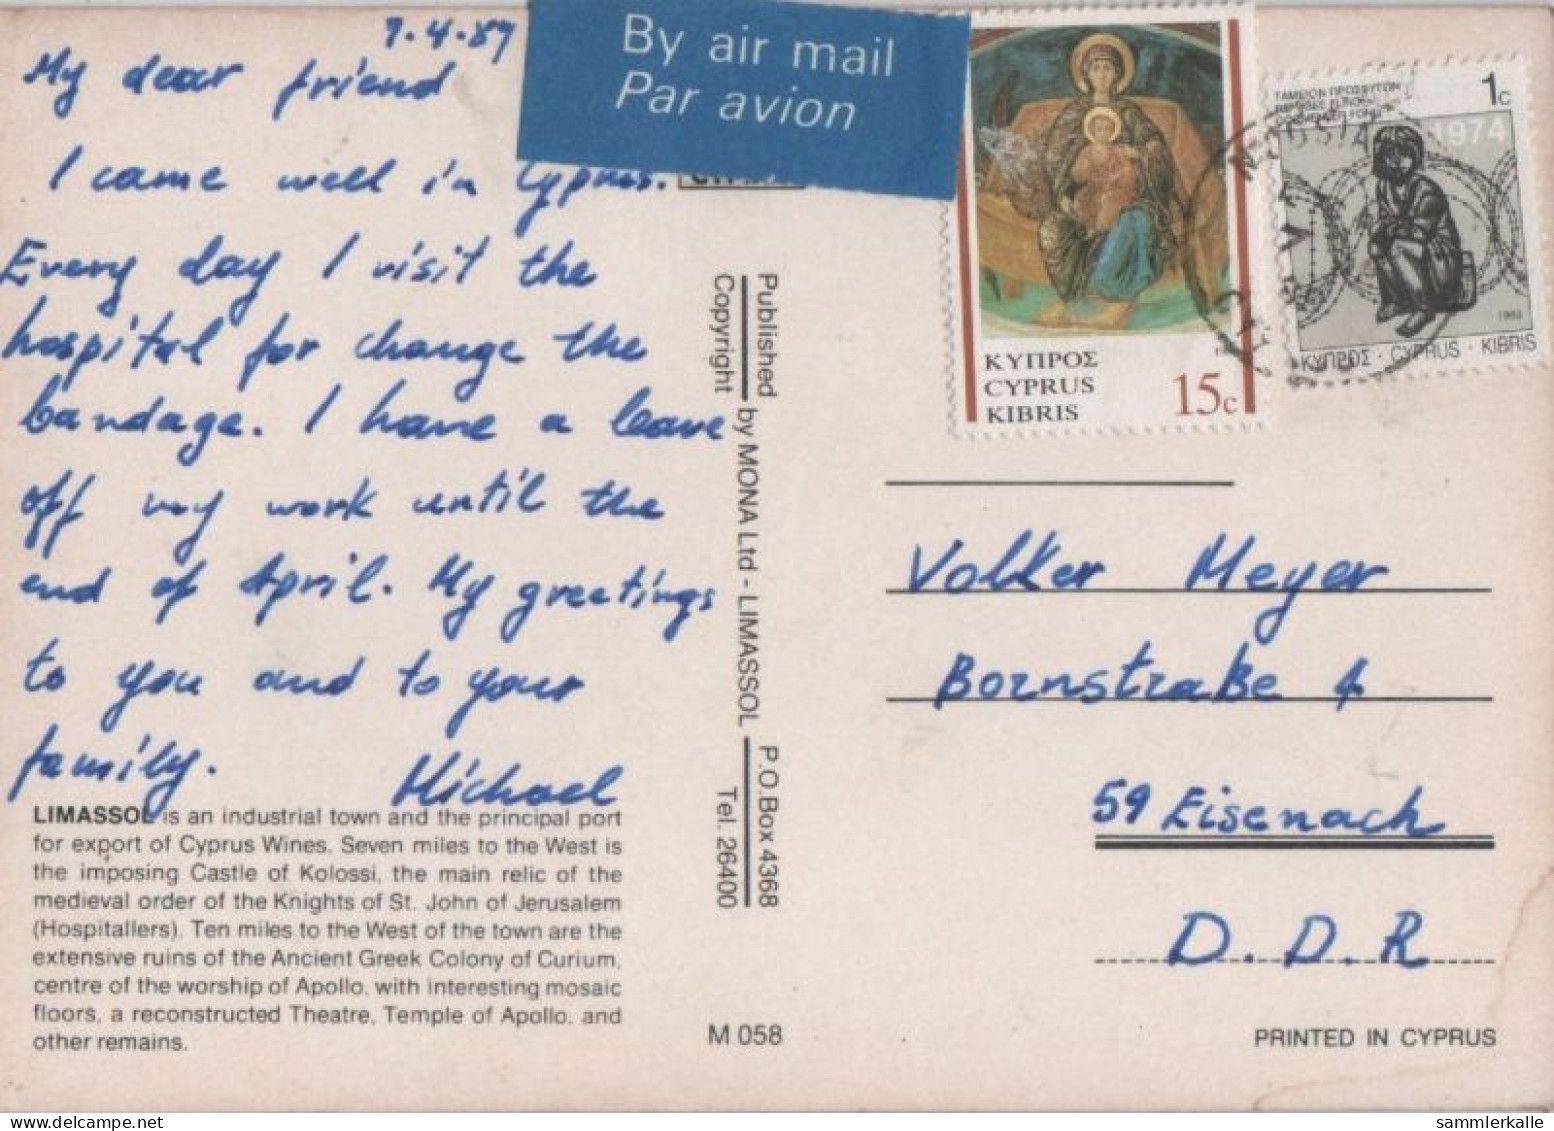 7.4.87
My dear friend
I came well in Cyprus.
Every day I visit the
hospital for change the
bandage. I have a leave
off my work until the
end of April. My greetings
to you and to your
family. Michael
LIMASSOL is an industrial town and the principal port
for export of Cyprus Wines. Seven miles to the West is
the imposing Castle of Kolossi, the main relic of the
medieval order of the Knights of St. John of Jerusalem
(Hospitallers). Ten miles to the West of the town are the
extensive ruins of the Ancient Greek Colony of Curium,
centre of the worship of Apollo, with interesting mosaic
floors, a reconstructed Theatre, Temple of Apollo, and
other remains.
By air mail
Par avion
Published
Copyright
by MONA Ltd - LIMASSOL
P.O.Box 4368
Tel. 26400
M 058
ΚΥΠΡΟΣ
CYPRUS
KIBRIS
15c
ΤΑΜΕΙΟΝ ΠΡΟΣΦΥΓΩΝ
1c
1974
ΚΥΠΡΟΣ · CYPRUS · KIBRIS
Volker Meyer
Bornstraße 1
59 Eisenach
D.D.R
PRINTED IN CYPRUS
sammlerkalle